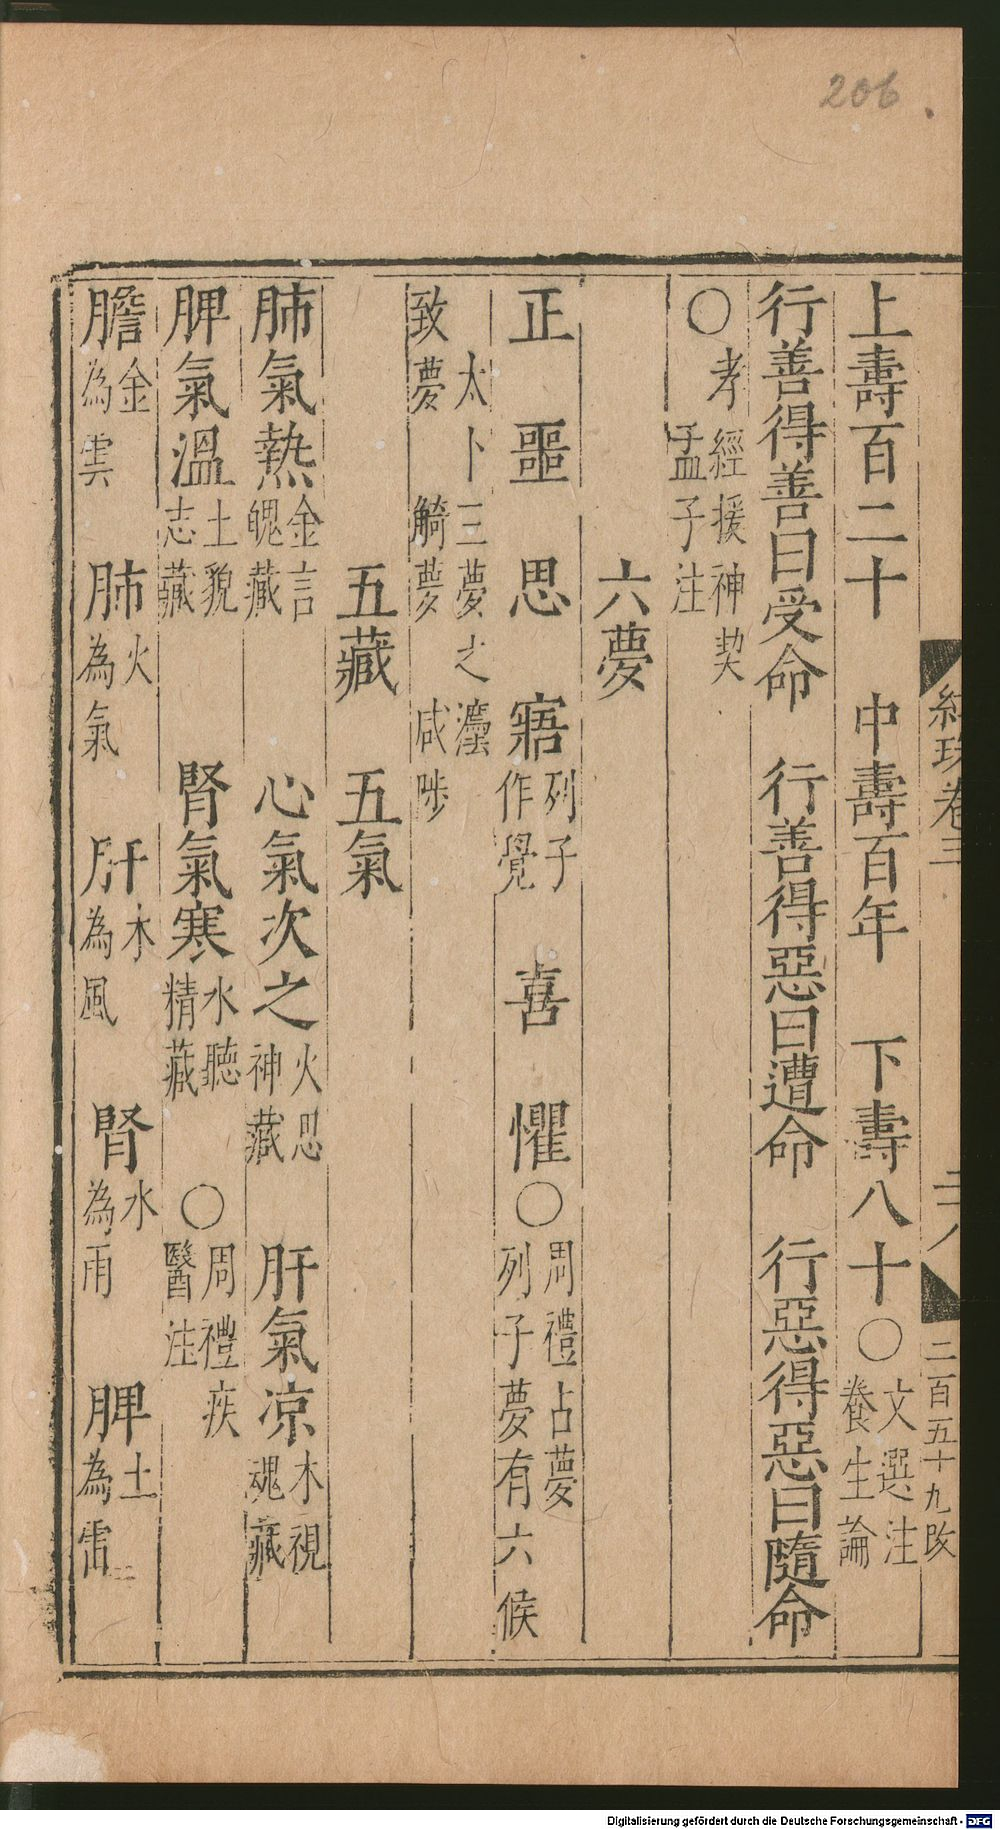 206
紺珠卷三
二百五十九改
上壽百二十　中壽百年　下壽八十〇文選注養生論
行善得善曰受命　行善得惡曰遭命　行惡得惡曰隨命
〇孝經援神契孟子注
六夢
正　噩　思　寤列子作覺　喜　懼〇周禮占夢列子夢有六候
太卜三夢之灋致夢　觭夢　咸陟
五藏　五氣
肺氣熱金言魄藏　心氣次之火思神藏　肝氣凉木視魂藏
脾氣溫土貌志藏　腎氣寒水聽精藏〇周禮疾醫注
膽金為雲　肺火為氣　肝木為風　腎水為雨　脾土為雷
Digitalisierung gefördert durch die Deutsche Forschungsgemeinschaft - DFG